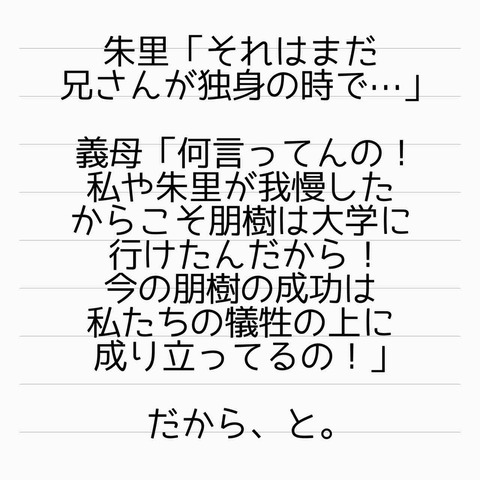 朱里「それはまだ
兄さんが独身の時で…」
義母「何言ってんの！
私や朱里が我慢した
からこそ朋樹は大学に
行けたんだから！
今の朋樹の成功は
私たちの犠牲の上に
成り立ってるの！」
だから、と。